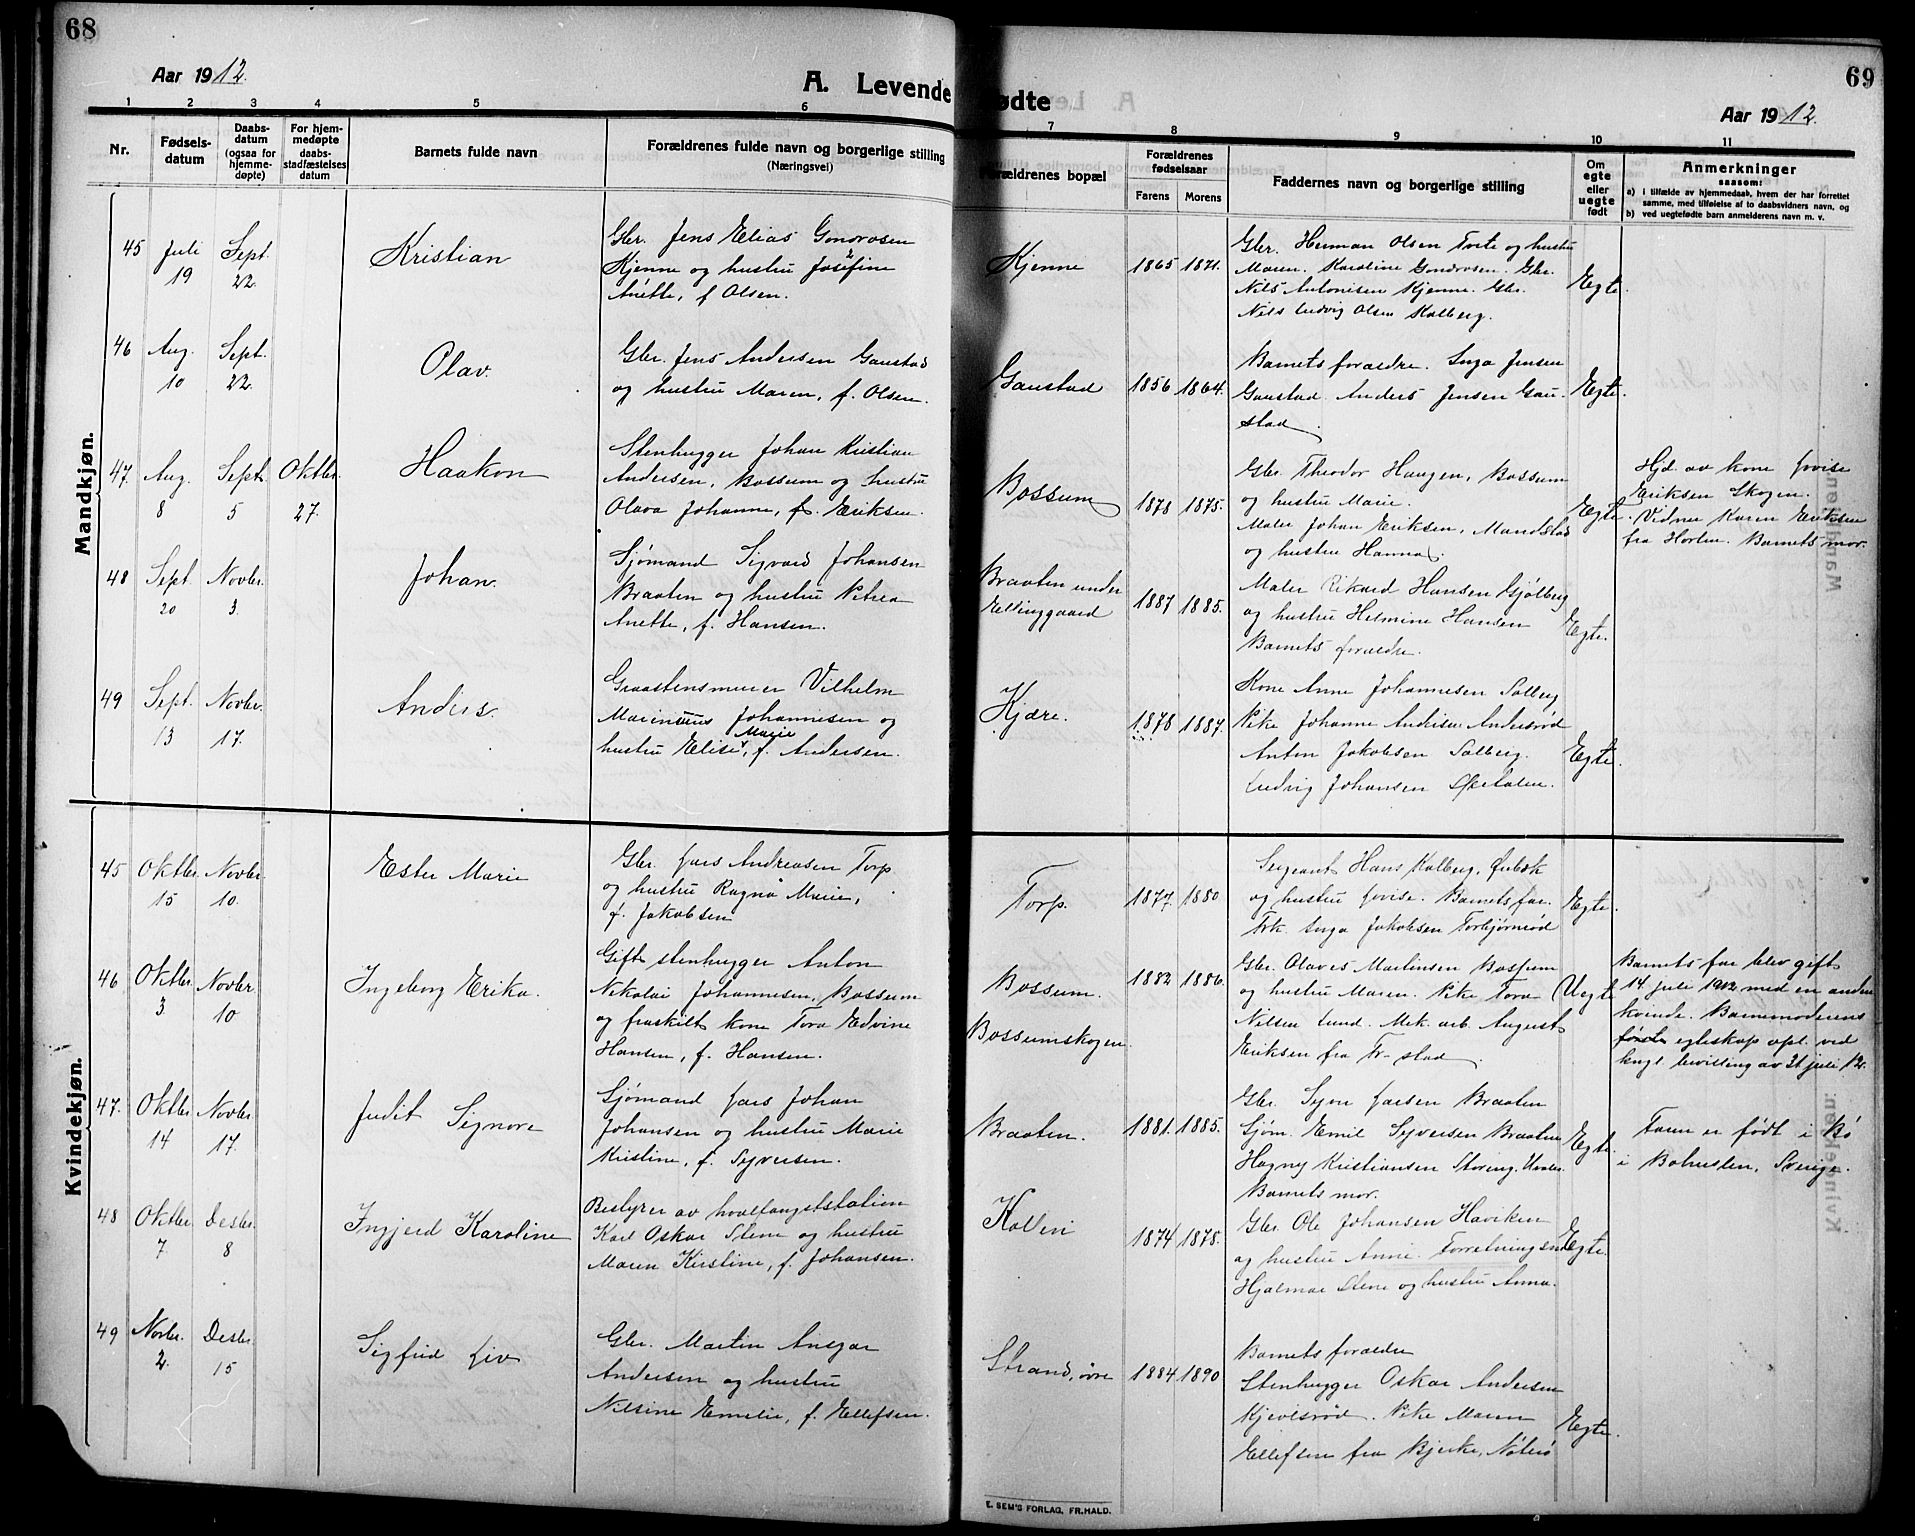 68
Aar 1912.
A. Levende
1 2 3 4 5 6
Nr.
Fødsels-
datum
Daabs-
datum
(ogsaa for
hjemme-
døpte)
For hjem-
medøpte
daabs-
stadfæstelses
datum
Barnets fulde navn
Forældrenes fulde navn og borgerlige stilling
(Næringsvei)
Mandkjøn.
45 Juli 19 Sept. 22. Kristian
Gbr. Jens Elias Gondrosen
Kjenne og hustru Josefine
Anette, f. Olsen.
46 Aug. 10 Sept. 22. Olav.
Gbr. Jens Andersen Gaustad
og hustru Maren, f. Olsen.
47. Aug. 8 Sept. 5 Oktbr. 27. Haakon
Stenhugger Johan Kristian
Andersen, Bossum og hustru
Olava Johanne, f. Eriksen.
48 Sept. 20 Novbr. 3. Johan.
Sjømand Sigvard Johansen
Braaten og hustru Petrea
Anette, f. Hansen.
49 Sept. 13 Novbr. 17. Anders.
Graastensmurer Vilhelm
Marinius Johannesen og
hustru Elise Marie, f. Andersen.
Kvindekjøn.
45 Oktbr. 15 Novbr. 10. Ester Marie
Gbr. Lars Andreasen Torp
og hustru Ragna Marie,
f. Jakobsen
46 Oktbr. 3 Novbr. 10 Ingeborg Erika.
Gift stenhugger Anton
Nikolai Johannesen, Bossum
og fraskilt kone Tora Edvine
Hansen, f. Hansen.
47. Oktbr. 14 Novbr. 17. Judit Signora
Sjømand Lars Johan
Johansen og hustru Marie
Kristine, f. Syversen.
48 Oktbr. 7 Desbr. 8 Ingjerd Karoline
Bestyrer av hvalfangststation
Karl Oskar Stene og hustru
Maren Kirstine, f. Johansen.
49 Novbr. 2. Desbr. 15 Sigfrid Liv
Gbr. Martin Ansgar
Andersen og hustru
Nilsine Emelie, f. Ellefsen.
69
ødte
Aar 1912.
7 8 9 10 11
Forældrenes bopæl
Forældrenes
fødselsaar
Farens Morens
Faddernes navn og borgerlige stilling
Om
egte
eller
uegte
født
Anmerkninger
saasom:
a) i tilfælde av hjemmedaab, hvem der har forrettet
samme, med tilføielse af to daabsvidners navn, og
b) ved uegtefødte barn anmelderens navn m. v.
Kjenne 1865 1871.
Gbr. Herman Olsen Tvete og hustru
Maren. Karoline Gondrosen. Gbr.
Nils Antonisen Kjenne. Gbr.
Nils Ludvig Olsen Kolberg.
Egte.
Gaustad 1856 1864.
Barnets forældre. Inga Jensen
Gaustad. Anders Jensen Gau-
stad.
Egte.
Bossum 1878 1875.
Gbr. Theodor Haugen, Bossum
og hustru Marie.
Maler Johan Eriksen, Mandstad
og hustru Hanna.
Egte.
Hjd. av kone Lovise
Eriksen Skogen.
Vidner Karen Eriksen
fra Horten. Barnets mor.
Braaten under
Ellinggaard 1887 1885.
Maler Rikard Hansen Gjølberg
og hustru Helmine Hansen
Barnets forældre.
Egte.
Kjære. 1878 1887.
Kone Anne Johannesen Solberg
Pike Johanne Andersen Andersrød
Anton Jakobsen Solberg.
Ludvig Johansen Spetalen.
Egte.
Torp. 1877 1880
Sergeant Hans Kolberg,
og hustru Lovise. Barnets far.
Frk. Inga Jakobsen Torbjørnrød
Egte.
Bossum.
Bossumskogen. 1882 1886.
Gbr. Olaves Martinsen Bossum
og hustru Maren. Pike Tora
Nilsen Lund. Mek. arb. August
Eriksen fra Fr-stad.
Uegte
Barnets far blev gift
14 juli 1912 med en anden
kvinde. Barnemoderens
egteskap opl. ved
kngl. bevilling av 31 juli 12.
Braaten. 1881. 1885.
Gbr. Syver Larsen Braaten
Sjøm. Emil Syversen Braaten
Hagny Kristiansen Storeng, Hvaler
Barnets mor.
Egte.
Faren er født i Bö
i Bohuslen, Sverige.
Kollen 1874 1878.
Gbr. Ole Johansen Haviken
og hustru Anne. Forretningsm.
Hjalmar Stene og hustru Anna.
Egte.
Strand, øvre 1884 1890
Barnets forældre
Stenhugger Oskar Andersen
Kjevlsrød. Pike Maren
Ellefsen fra Bjerke, Nøterø
Egte.
E. SEM'S FORLAG, FR.HALD.